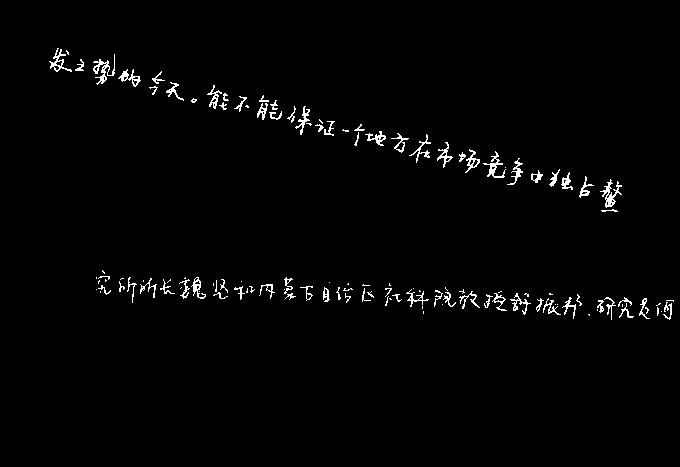 发之势的今天。能不能保证一个地方在市场竞争中独占鳌
究所所长魏坚和内蒙古自治区社科院教授舒振邦、研究员何